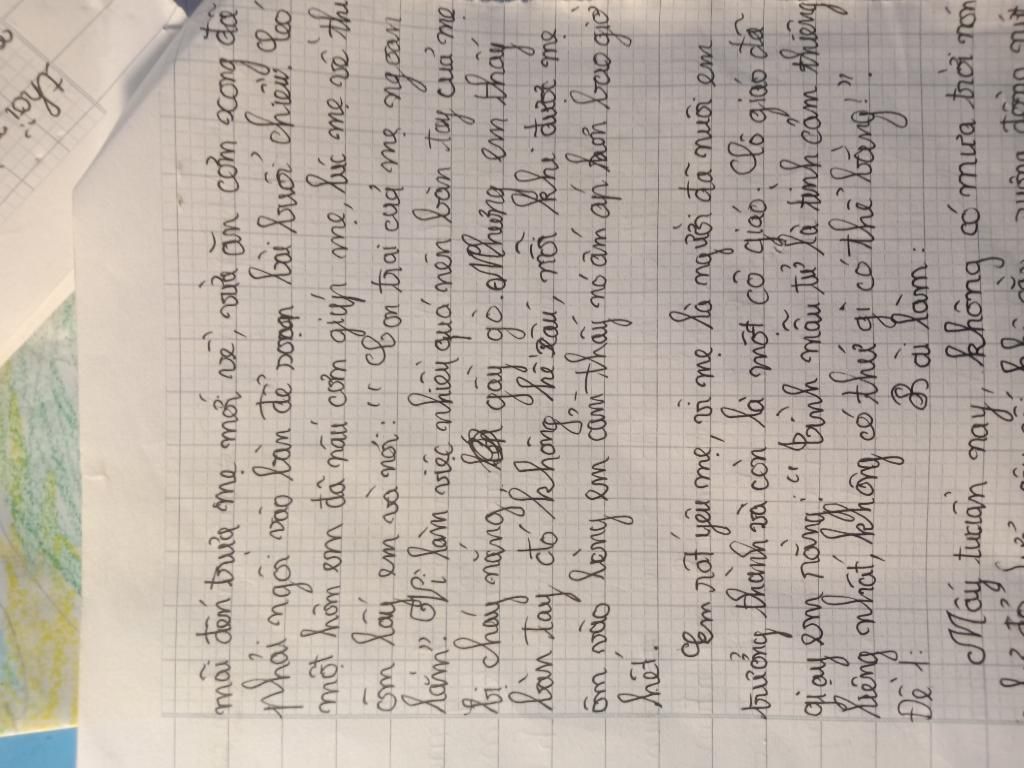 mãi đến trưa mẹ mới về, vừa ăn cơm xong đã
phải ngồi vào bàn để soạn bài buổi chiều. Có
một hôm em đã nấu cơm giúp mẹ, lúc mẹ về thì
ôm lấy em và nói: "Con trai của mẹ ngoan
lắm". Vì làm việc nhiều quá nên bàn tay của mẹ
bị cháy nắng, gầy gò. Nhưng em thấy
bàn tay đó không hề xấu, mỗi khi được mẹ
ôm vào lòng em cảm thấy nó ấm áp hơn bao giờ
hết.
Em rất yêu mẹ, vì mẹ là người đã nuôi em
trưởng thành và còn là một cô giáo. Cô giáo đã
giạy em rằng: "Tình mẫu tử là tình cảm thiêng
liêng nhất, không có thứ gì có thể bằng!"
Đề 1: Bài làm:
Mấy tuần nay, không có mưa trời nón
Thơi